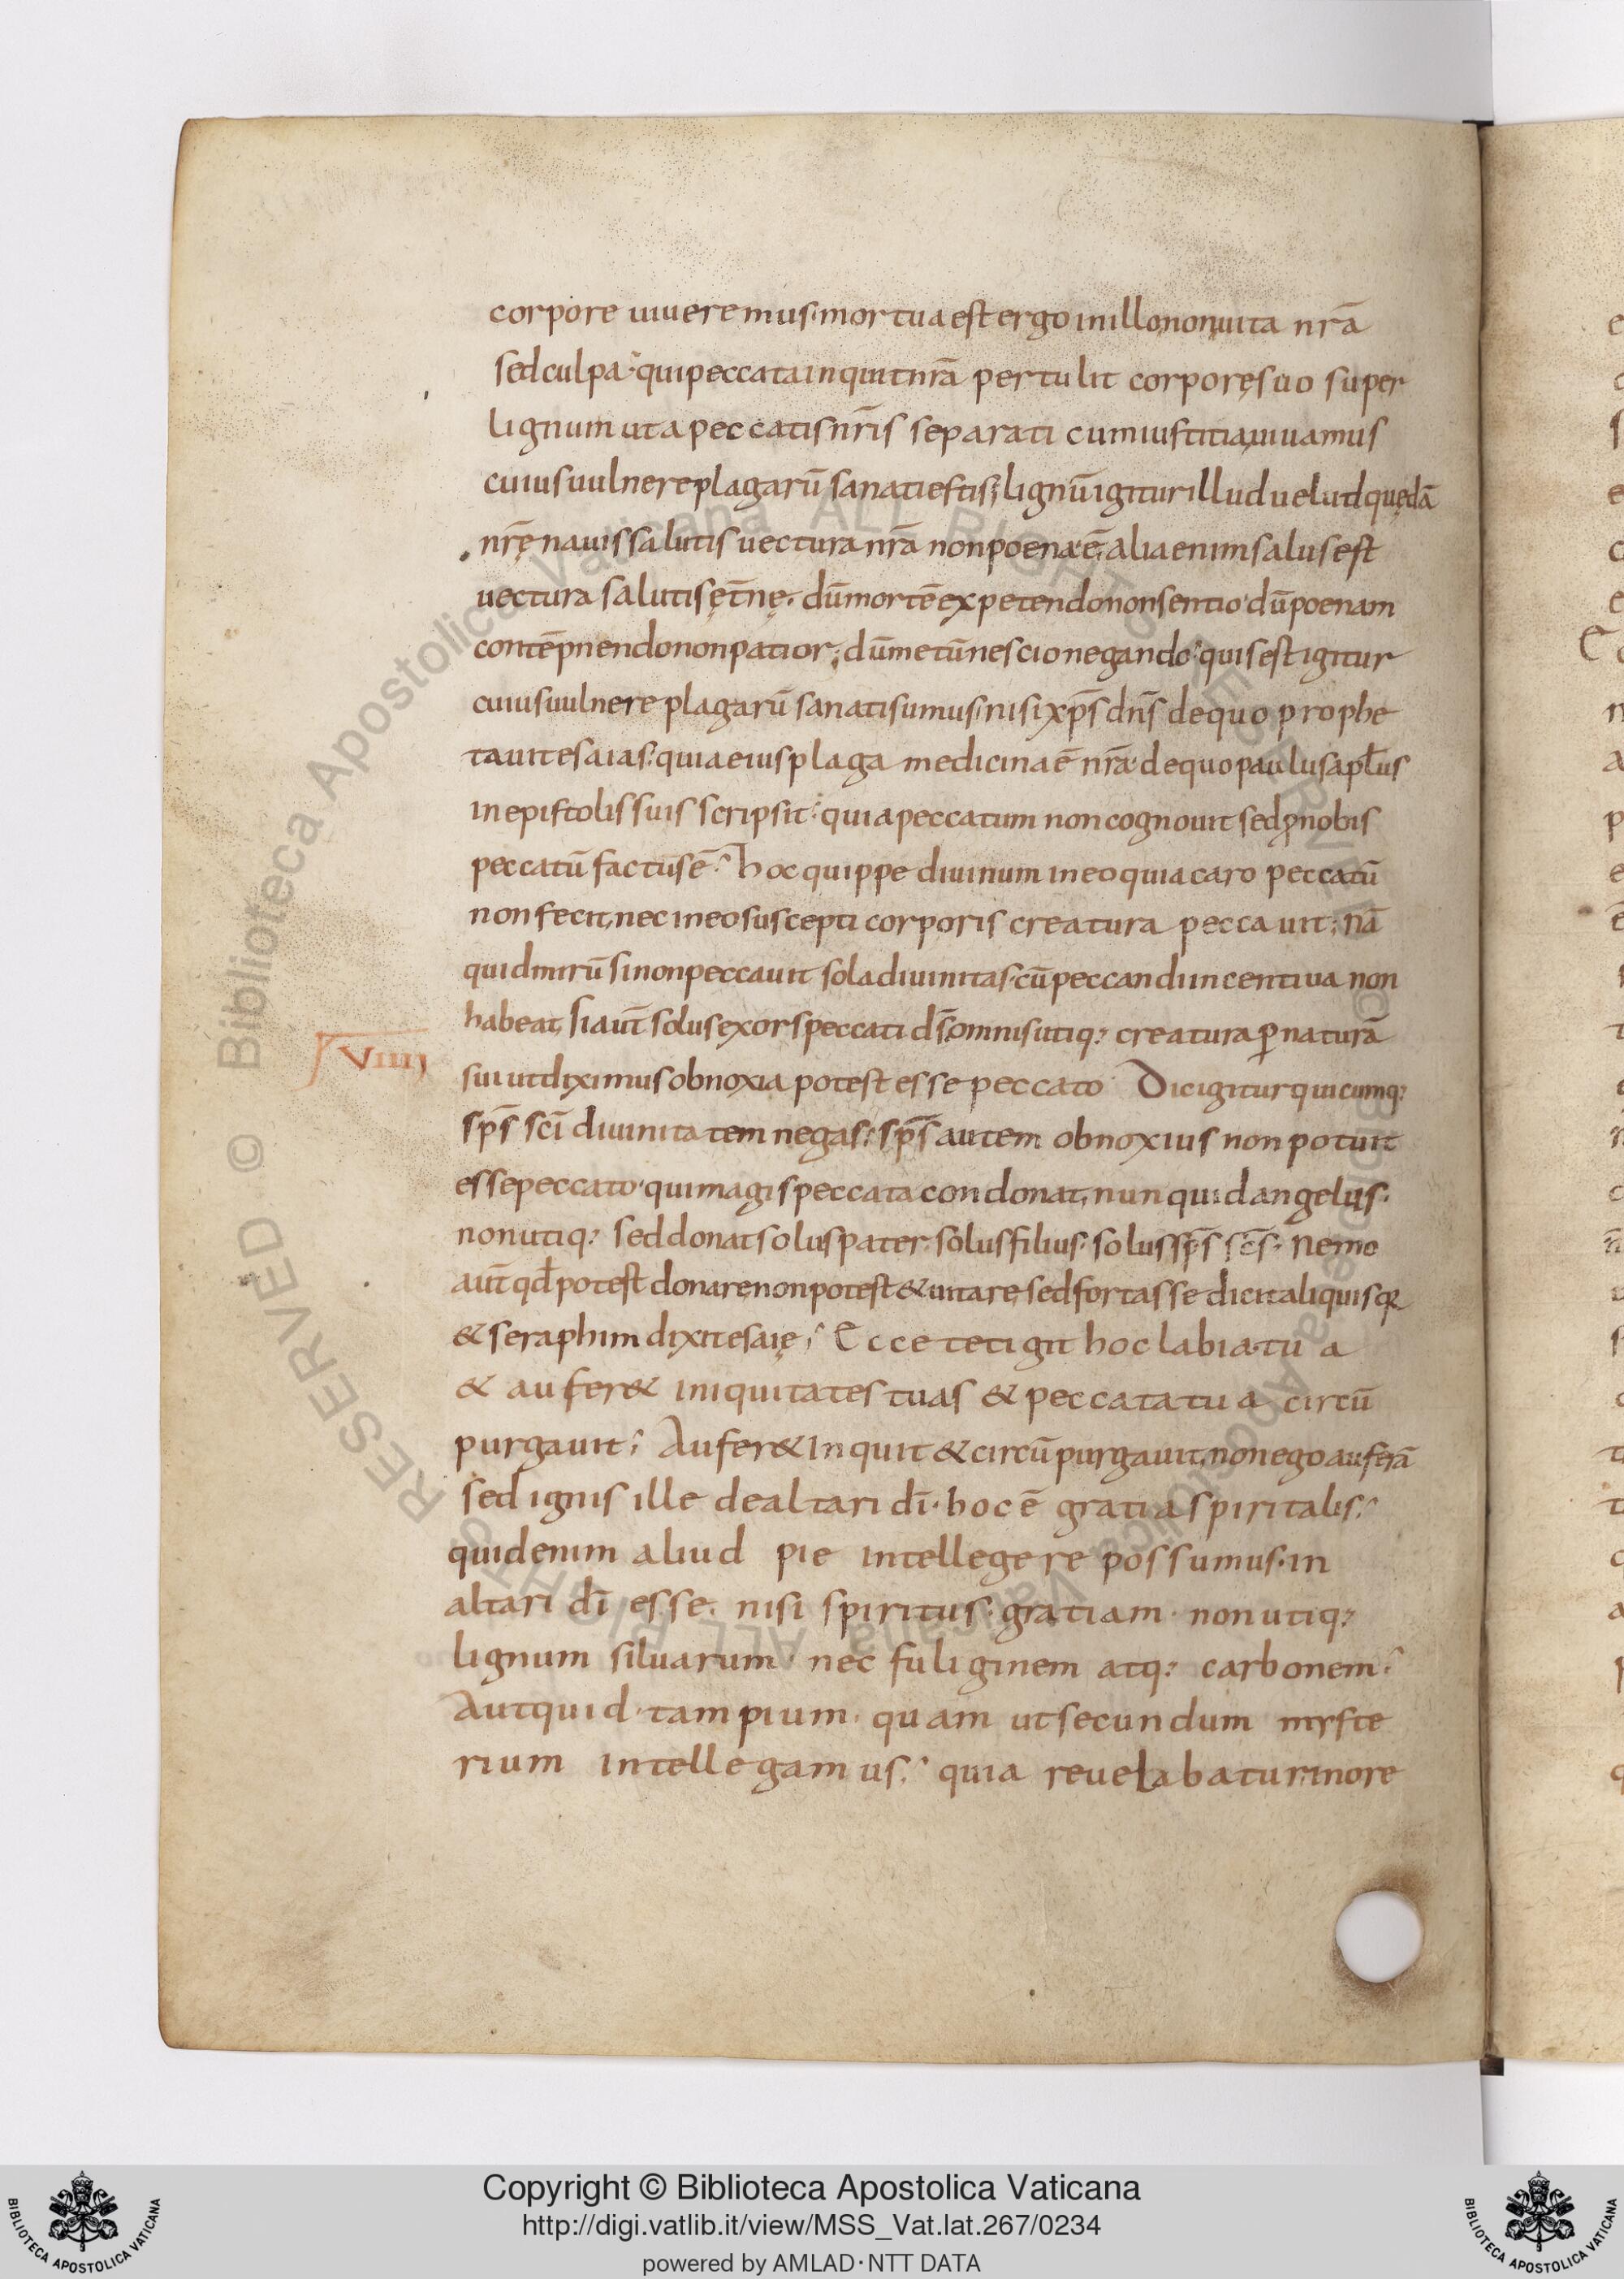 corpore uiueremus· mortua est ergo in illo, non uita nr̄a
sed culpa; qui peccata inquit nr̄a pertulit corpore suo super
lignum ut a peccatis nr̄is separati cum iustitia uiuamus
cuius uulnere plagarū sanati estis; lignū igitur illud uelud quędā
nr̄ę nauis salutis uectura nr̄a non poena ē; alia enim salus est
uectura salutis ęt̄nę. dū mortē expetendo non sentio· dū poenam
contēpnendo non patior; dū metū nescio negando; quis est igitur
cuius uulnere plagarū sanati sumus; nisi xp̄s dn̄s de quo prophe
tauit esaias: quia eius plaga medicina ē nr̄a· de quo paulus apl̄us
in epistolis suis scripsit; quia peccatum non cognouit sed ꝓ nobis
peccatū factus ē; hoc quippe diuinum in eo quia caro peccatū
non fecit, nec in eo suscepti corporis creatura peccauit; nā
quid mirū si non peccauit sola diuinitas· cū peccandi incentiua non
habeat, si aut̄ solus exors peccati d̄s omnis utiq; creatura ꝑ naturā
VIIII
sui ut diximus obnoxia potest esse peccato· Dic igitur quicumq;
sp̄s sc̄i diuinitatem negas; sp̄s autem obnoxius non potuit
esse peccato· qui magis peccata condonat, nunquid angelus·
non utiq; sed donat solus pater· solus filius· solus sp̄s sc̄s· Nemo
aut̄ qđ potest donare, non potest & uitare, sed fortasse dicit aliquis qꝛ
& seraphim dixit esaię; Ecce tetigit hoc labia tua
& aufer& iniquitates tuas & peccata tua circū
purgauit; Aufer& inquit & circū purgauit, non ego auferā
sed ignis ille de altari dī· hoc ē gratia spiritalis;
quid enim aliud pie intellegere possumus· in
altari dī esse· nisi spiritus· gratiam· non utiq;
lignum siluarum· nec fuliginem atq; carbonem;
Aut quid· tam pium· quam ut secundum myste
rium intellegamus; quia reuelabatur in ore
Copyright © Biblioteca Apostolica Vaticana
http://digi.vatlib.it/view/MSS_Vat.lat.267/0234
powered by AMLAD·NTT DATA
BIBLIOTECA APOSTOLICA VATICANA
BIBLIOTECA APOSTOLICA VATICANA
© Biblioteca Apostolica Vaticana ALL RIGHTS RESERVED © Biblioteca Apostolica Vaticana ALL RIGHTS RESERVED